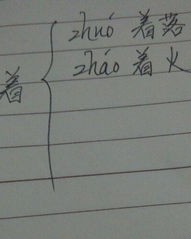 zhuó 着落
zháo 着火
着